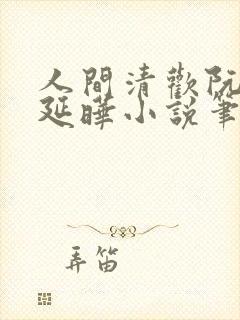 人間清歡阮
延曄小說筆
弄笛